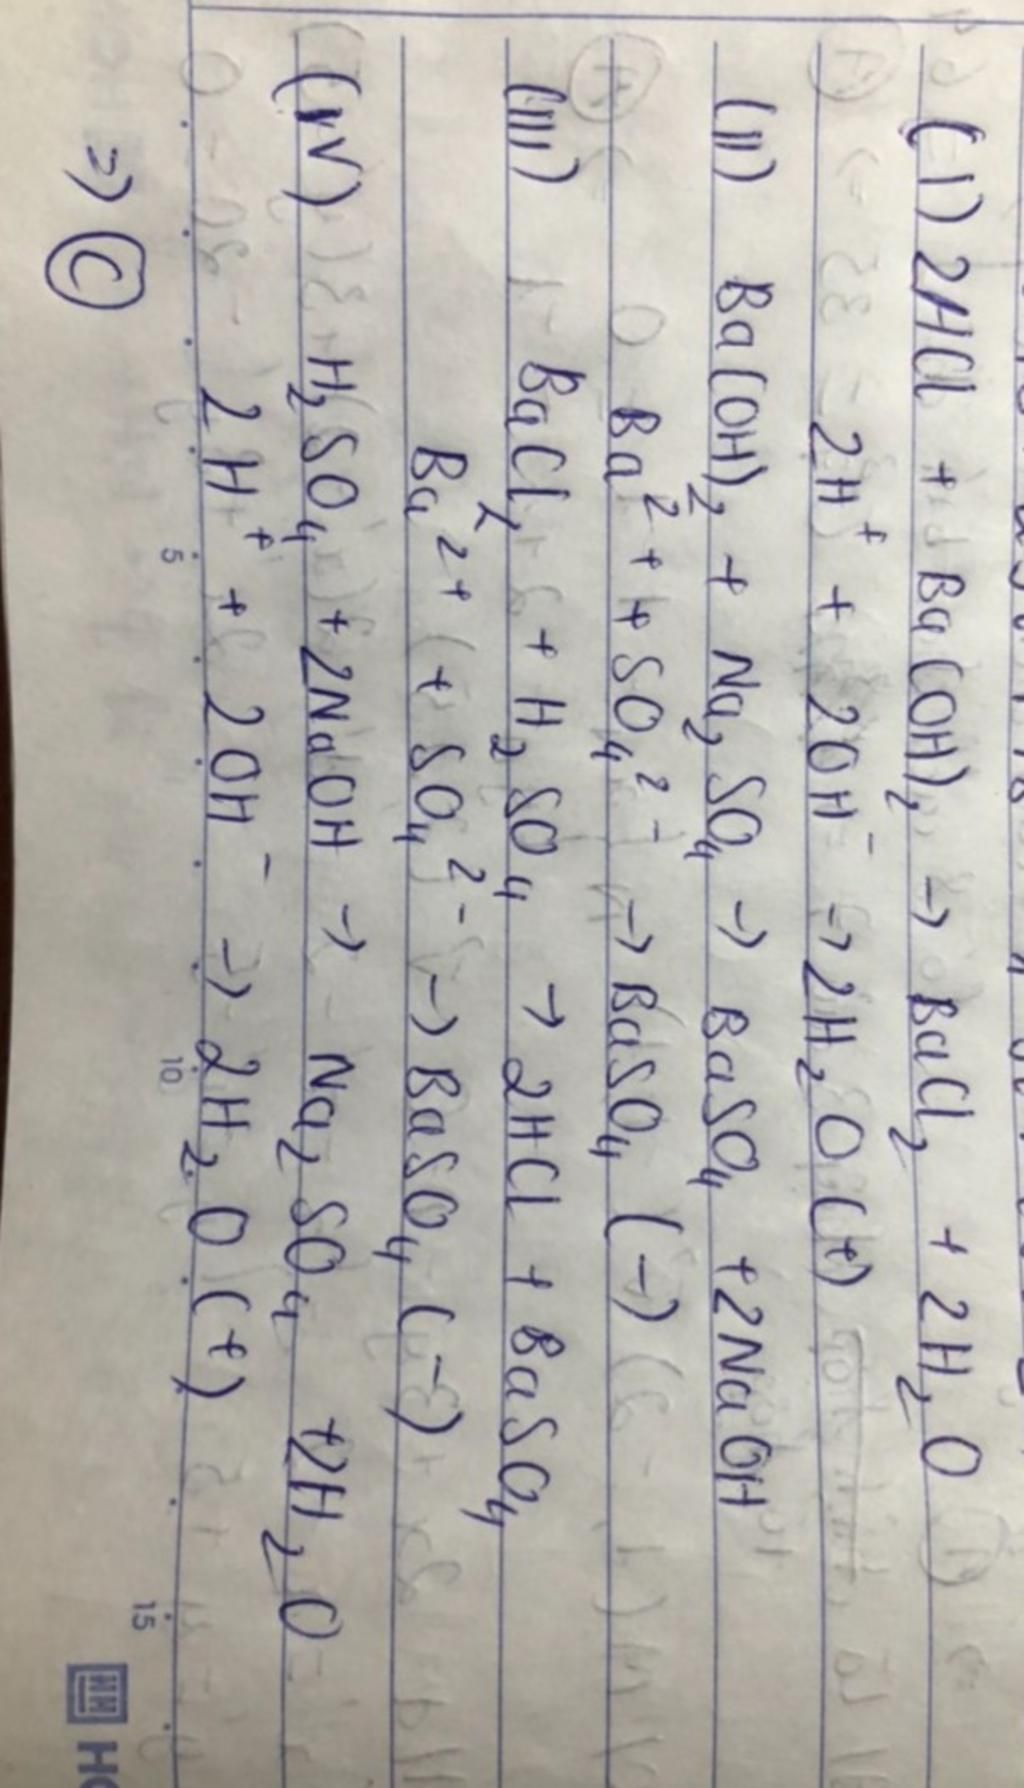 (I) 2HCl + Ba(OH)₂ → BaCl₂ + 2H₂O
2H⁺ + 2OH⁻ → 2H₂O (+)
(II) Ba(OH)₂ + Na₂SO₄ → BaSO₄ +2NaOH
Ba²⁺ + SO₄²⁻ → BaSO₄ (-)
(III) BaCl₂ + H₂SO₄ → 2HCl + BaSO₄
Ba²⁺ + SO₄²⁻ → BaSO₄ (-)
(IV) H₂SO₄ +2NaOH → Na₂SO₄ +2H₂O
2H⁺ + 2OH⁻ → 2H₂O (+)
5 10 15
=> C